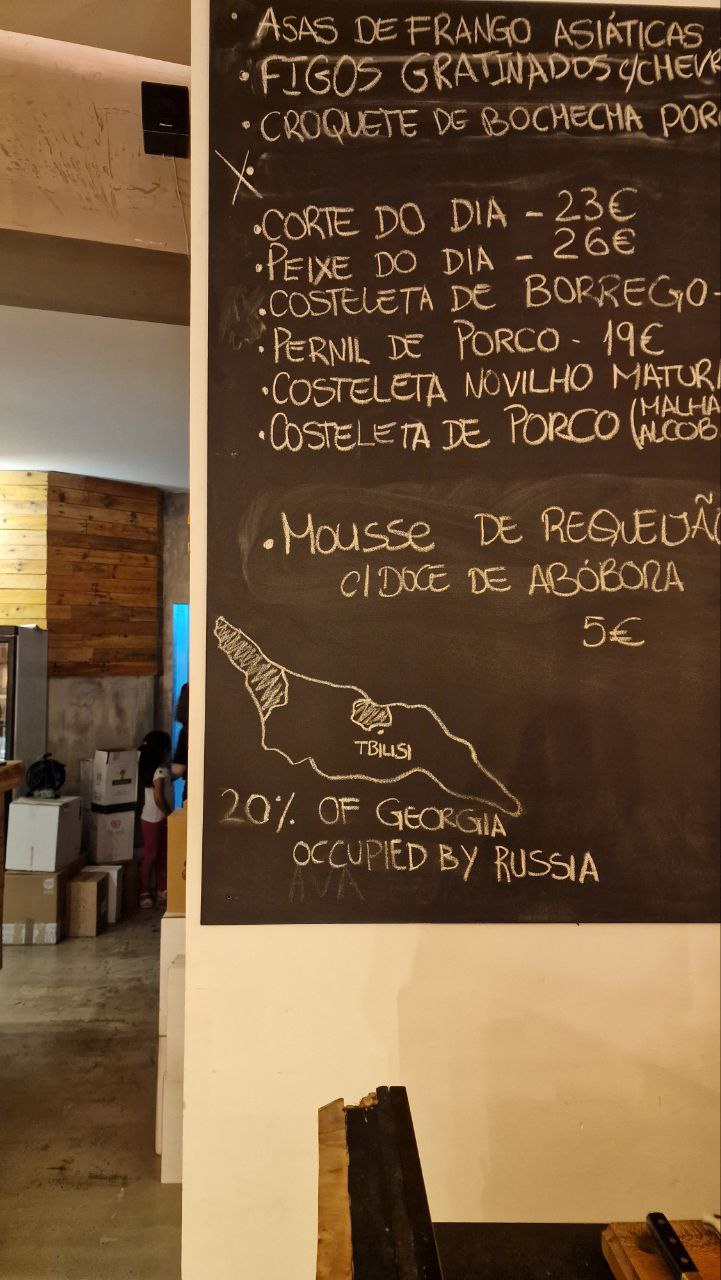 • ASAS DE FRANGO ASIÁTICAS
• FIGOS GRATINADOS C/CHEVR
• CROQUETE DE BOCHECHA POR
• CORTE DO DIA - 23€
• PEIXE DO DIA - 26€
• COSTELETA DE BORREGO -
• PERNIL DE PORCO - 19€
• COSTELETA NOVILHO MATURA
• COSTELETA DE PORCO (MALHA
ALCOB
• MOUSSE DE REQUEIJÃO
C/DOCE DE ABÓBORA
5€
TBILISI
20% OF GEORGIA
OCCUPIED BY RUSSIA
AVA